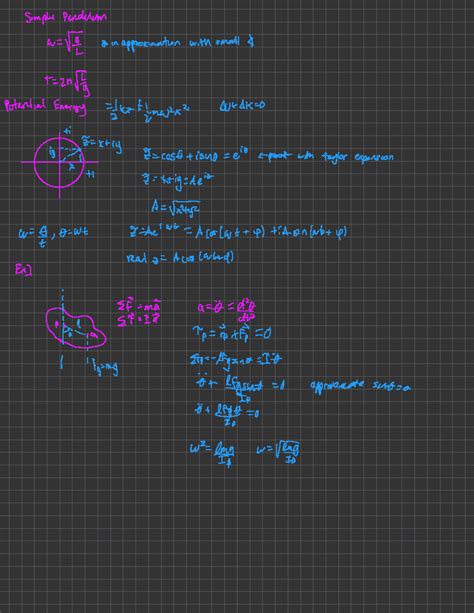 Simple Pendulum
ω=√(g/L) an approximation with small θ
T=2π√(L/g)
Potential Energy =½kx²=½mω²x² ΔU+ΔK=0
+i
z̃=x+iy
iy
x
+1
z̃=cosθ+isinθ=e^(iθ) ← proof with taylor expansion
z̃=x+iy=Ae^(iθ)
A=√(x²+y²)
ω=θ/t, θ=ωt z̃=Ae^(iωt)=Acos(ωt+φ)+iAsin(ωt+φ)
real z=Acos(ωt+φ)
Ex]
ΣF⃗=ma⃗ α=θ̈=d²θ/dt²
l
θ
cm
τ_p=r⃗_p×F⃗_p=0
F_g=mg
Στ_p=-lF_g sinθ=Iθ̈
θ̈+lF_g sinθ/I_p=0 approximate sinθ=θ
θ̈+lF_gθ/I_p=0
ω²=lmg/I_p ω=√(lmg/I_p)